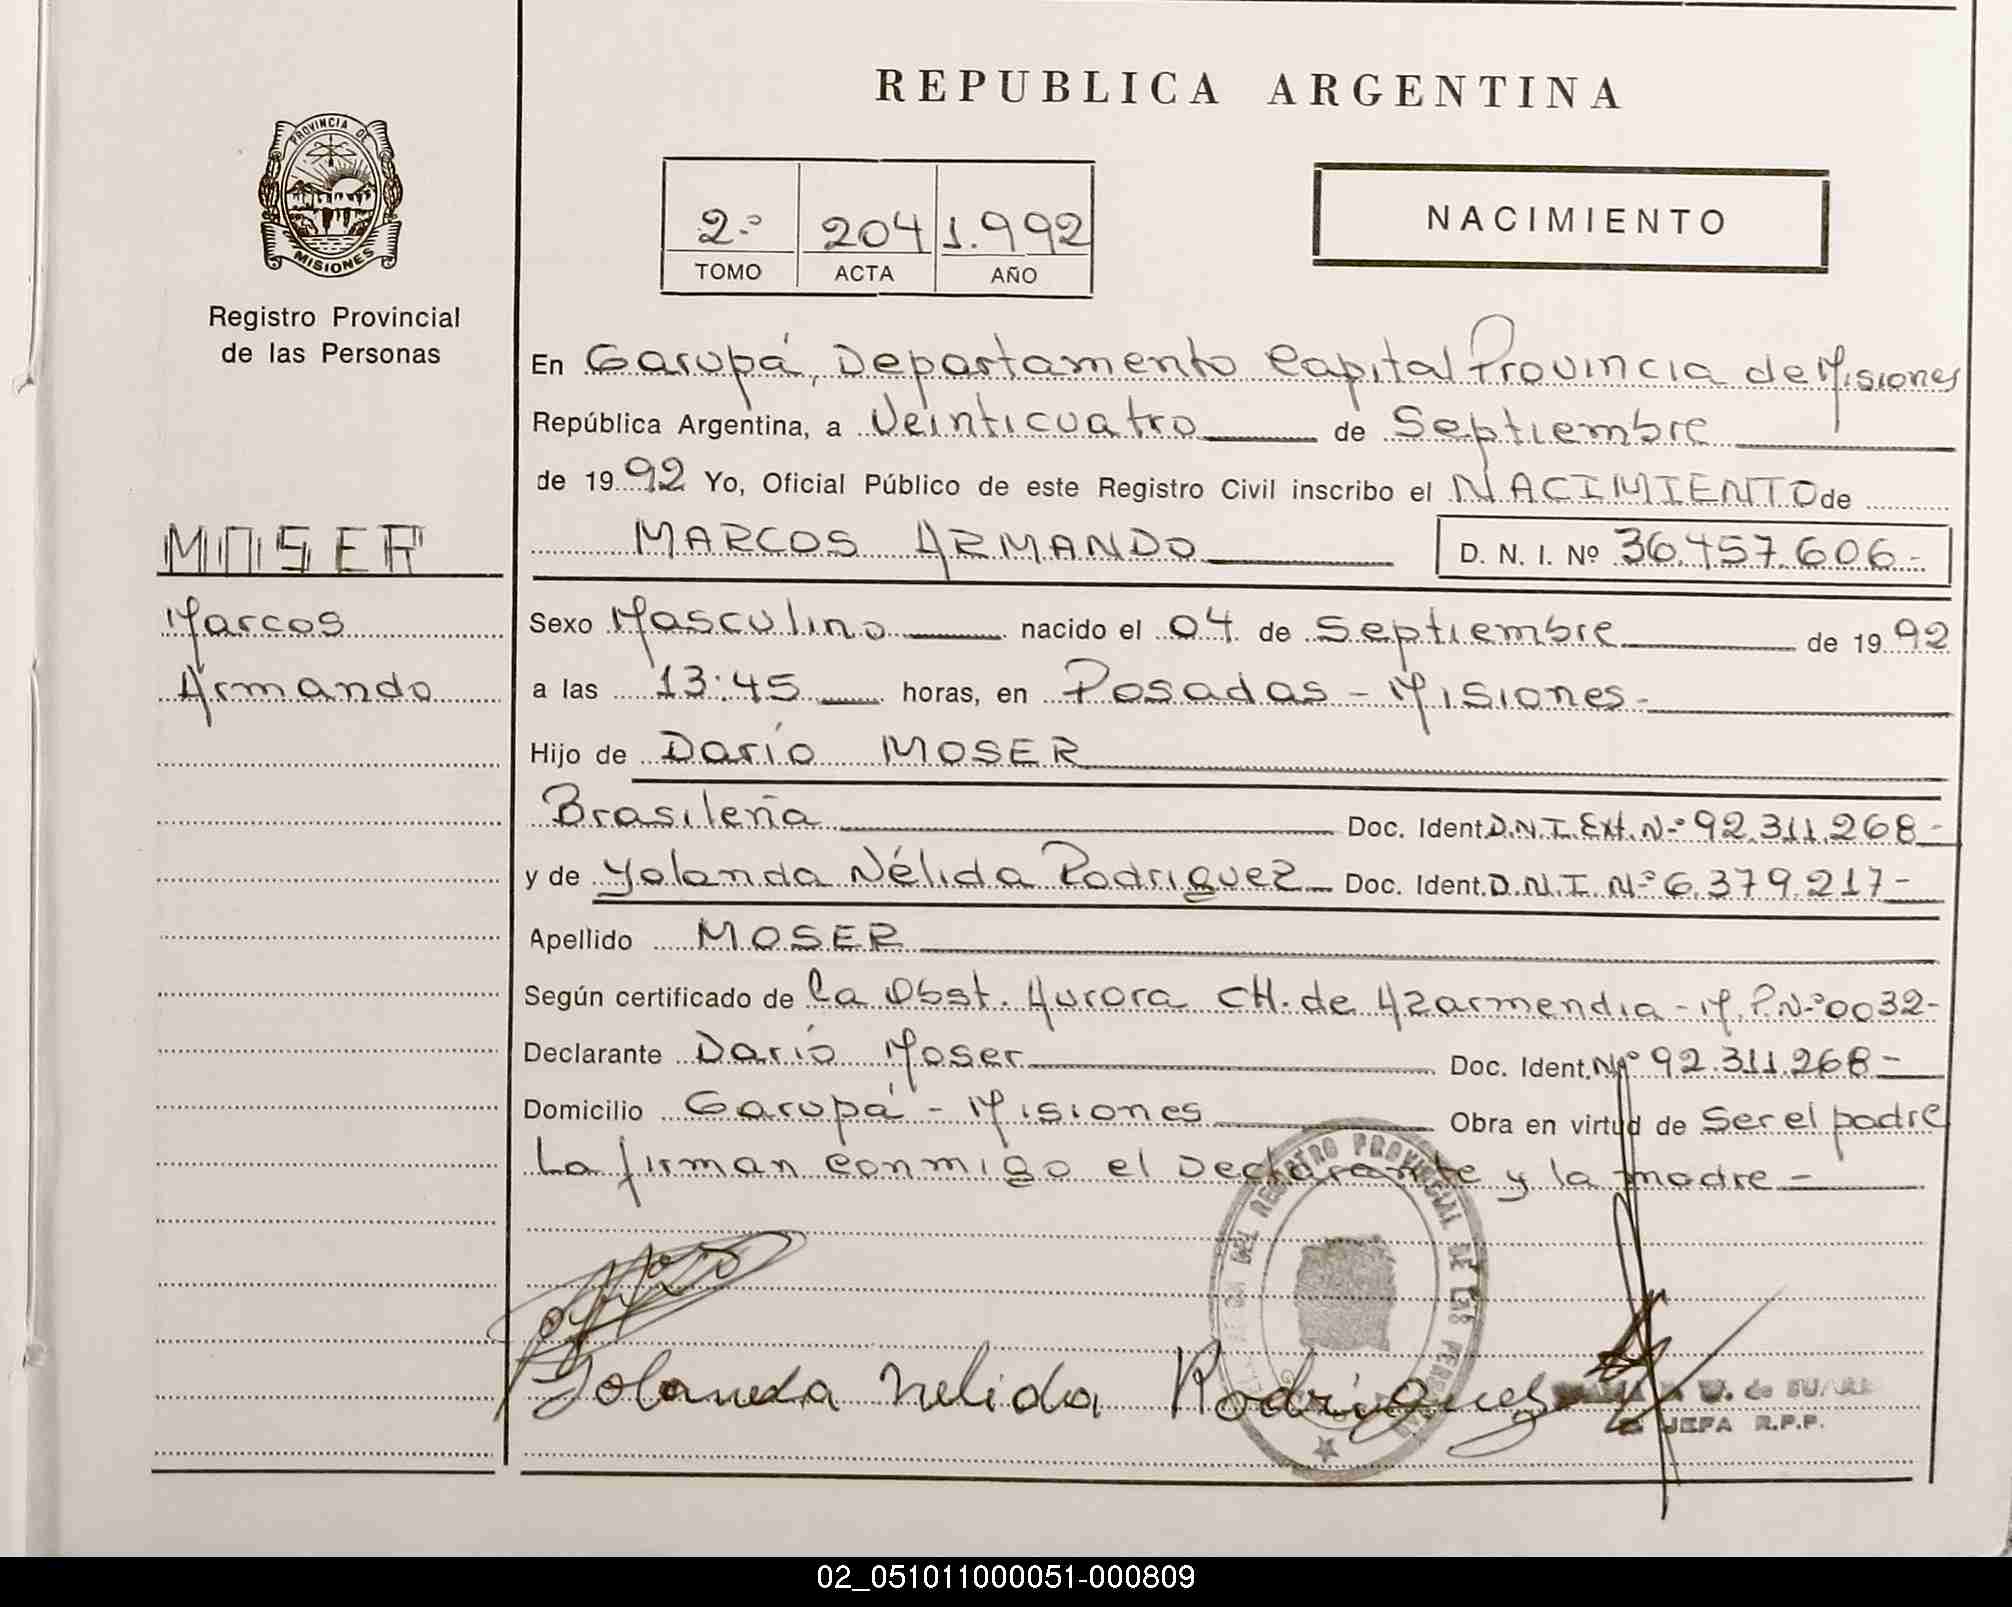 REPUBLICA ARGENTINA
PROVINCIA DE
MISIONES
Registro Provincial
de las Personas
2º 204 1.992
TOMO ACTA AÑO
NACIMIENTO
En Garupá, Departamento Capital Provincia de Misiones
República Argentina, a Veinticuatro de Septiembre
de 1992 Yo, Oficial Público de este Registro Civil inscribo el NACIMIENTO de
MARCOS ARMANDO D. N. I. Nº 36.457.606-
MOSER
Marcos
Armando
Sexo Masculino nacido el 04 de Septiembre de 1992
a las 13:45 horas, en Posadas - Misiones-
Hijo de Darío MOSER
Brasileña Doc. Ident. D.N.I. Ext. Nº 92.311.268-
y de Yolanda Nélida Rodriguez Doc. Ident. D.N.I. Nº 6.379.217-
Apellido MOSER
Según certificado de la Obst. Aurora CH. de Azarmendia - M.P. Nº 0032-
Declarante Darío Moser Doc. Ident. Nº 92.311.268-
Domicilio Garupá - Misiones Obra en virtud de Ser el padre
La firman conmigo el Declarante y la madre -
DEL REGISTRO PROVINCIAL DE LAS PERSONAS
Yolanda Nelida Rodrigues
W. de SUAREZ
JEFA R.P.P.
02_051011000051-000809